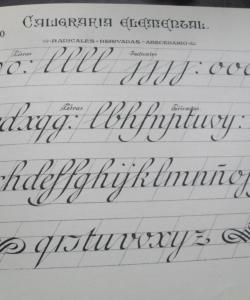 0
CALIGRAFIA ELEMENTAL.
RADICALES-DERIVADAS-ABECEDARIO
Letras Radicales
o: llll jjjj: ooo
Letras Derivadas
dxqg: lbhfnptuvy:
chdefghijklmnñop
qrstuvvxyz